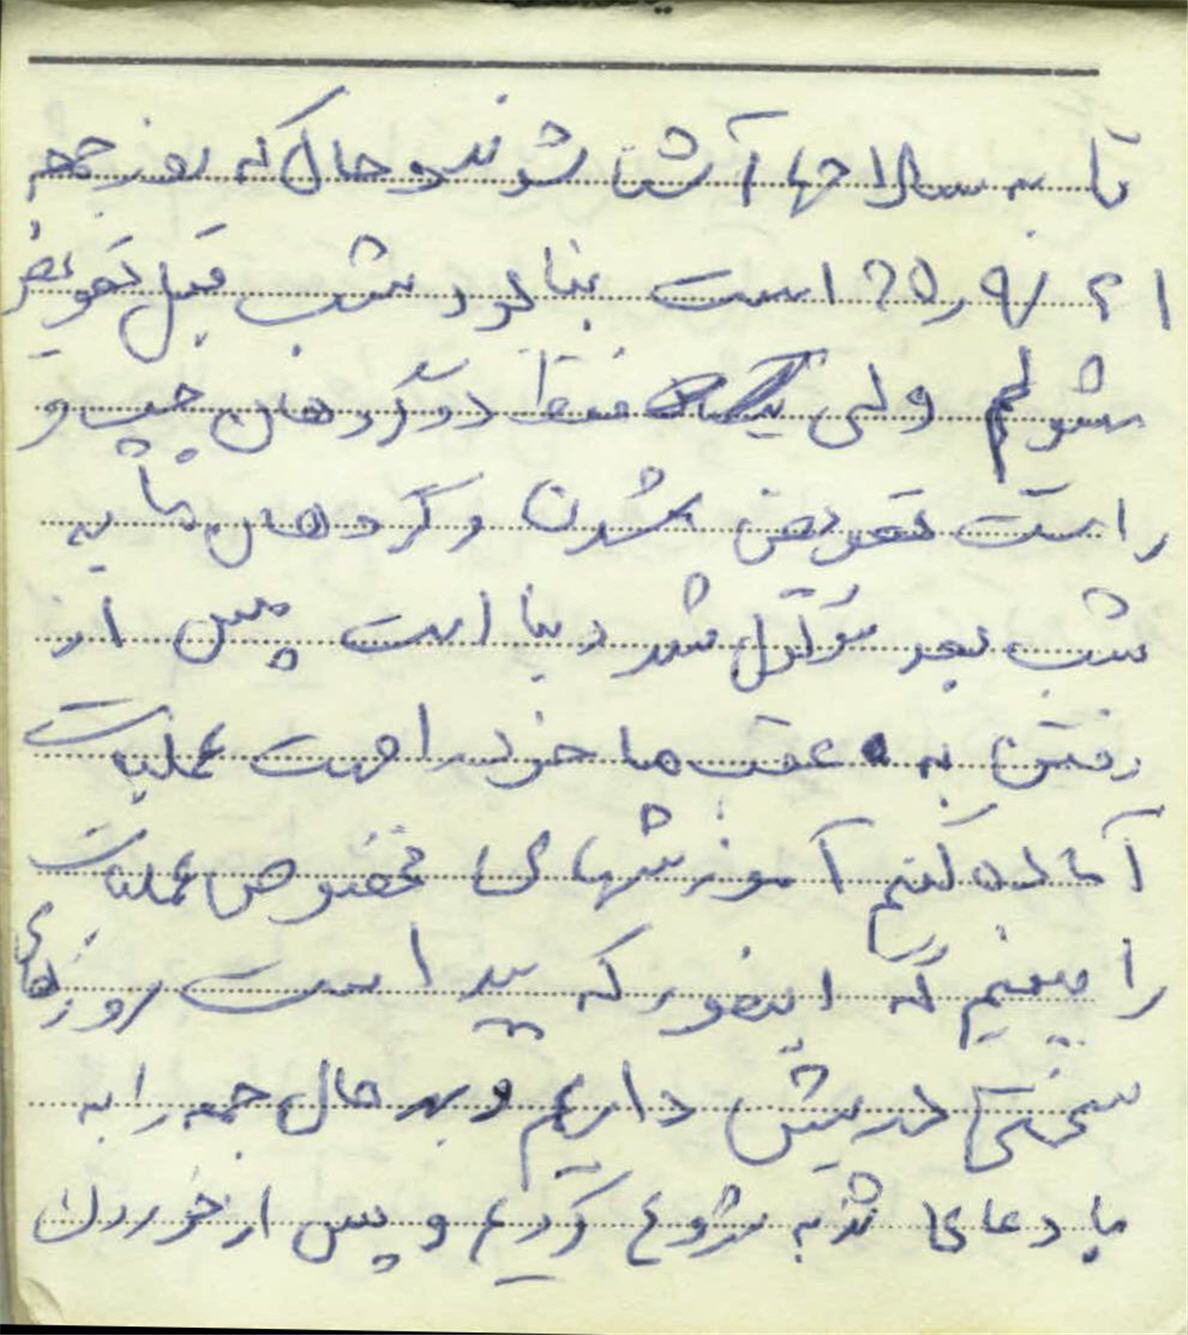 تا به سلاحها آشنا شوند و حال که روز جمعه
۲۱ /۹ ر ۶۵ است بنا بود شب قبل تعویض
شویم ولی فقط دو گردهان چپ و
راست تعویض شدن و گردهان ما به
شب بعد موکول شد و بنا است پس از
رفتن به عقب ما خود را جهت عملیات
آماده کنیم آموزشهای مخصوص عملیات
را ببینیم که اینطور که پیدا است روزهای
سختی در پیش داریم و بهر حال جمعه را به
با دعای ندبه شروع کردیم و پس از خوردن